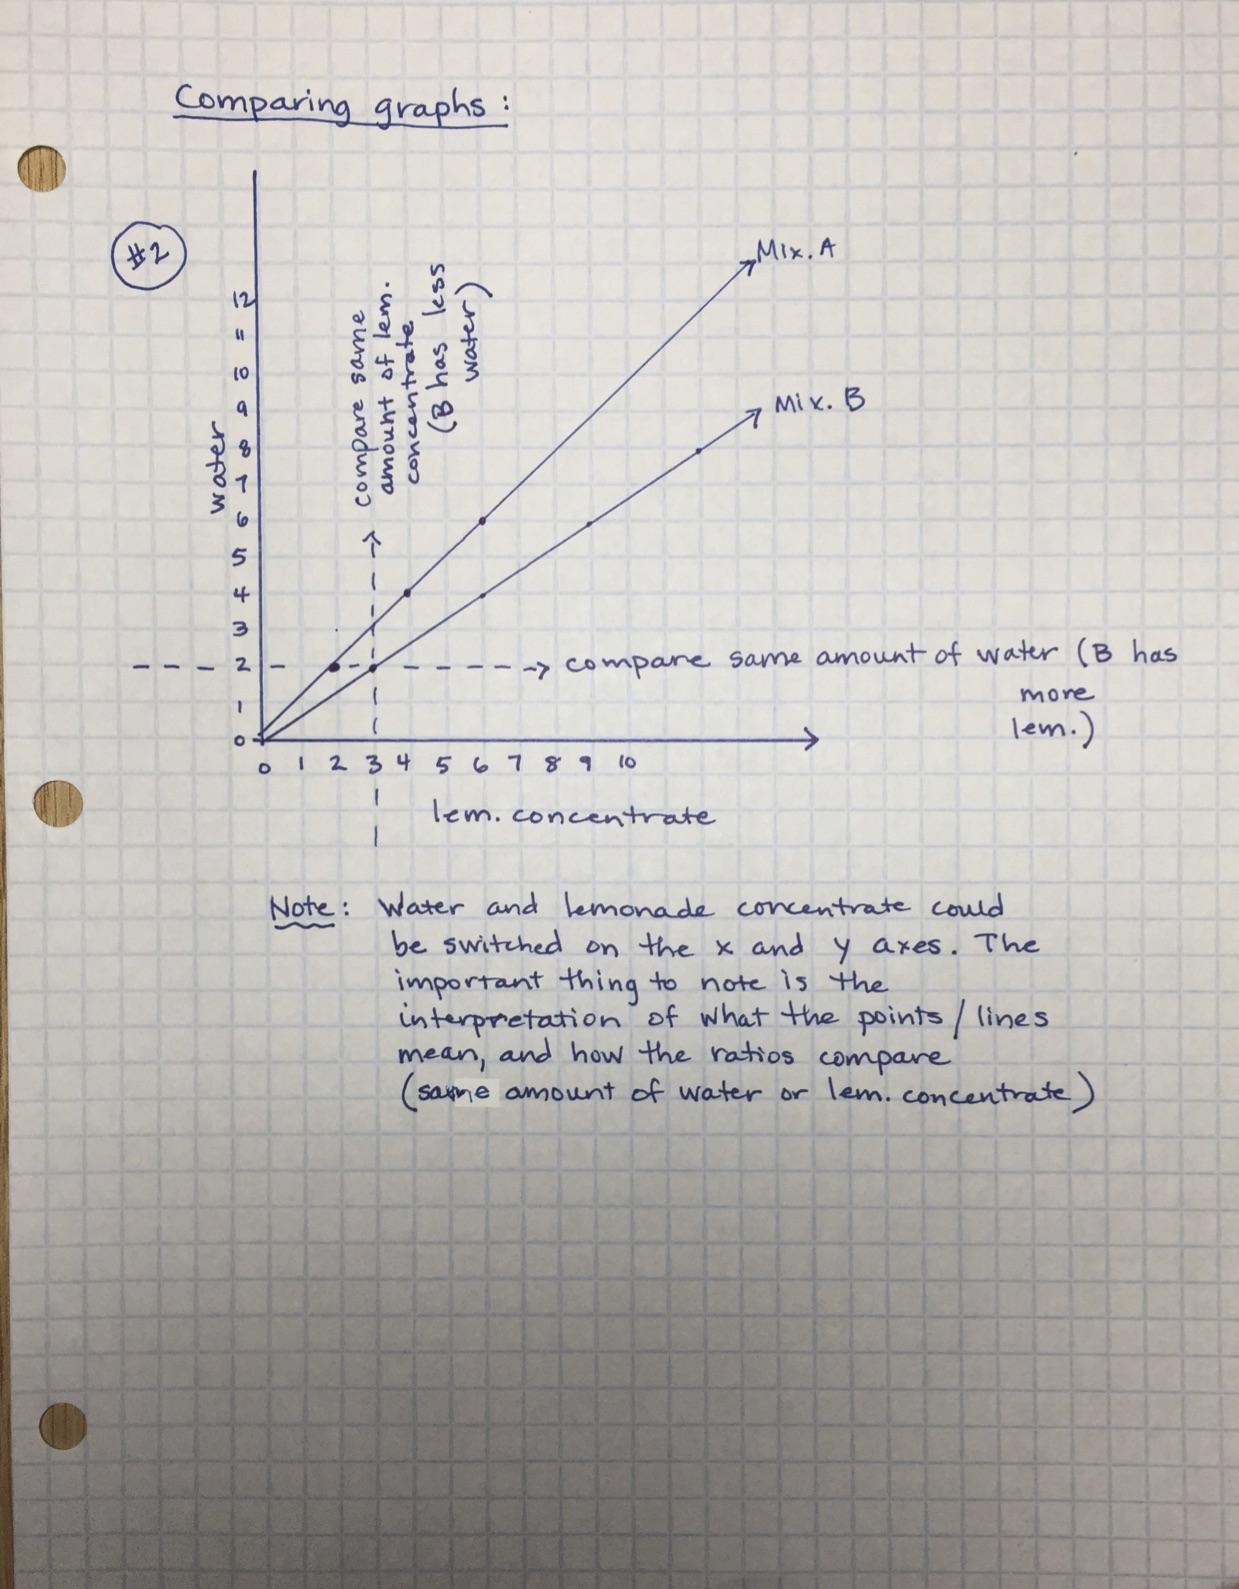 Comparing graphs:
#2
compare same
amount of lem.
concentrate
(B has less
water)
Mix. A
Mix. B
water
12
11
10
9
8
7
6
5
4
3
2
1
0
compare same amount of water (B has
more
lem.)
0 1 2 3 4 5 6 7 8 9 10
lem. concentrate
Note: Water and lemonade concentrate could
be switched on the x and y axes. The
important thing to note is the
interpretation of what the points/lines
mean, and how the ratios compare
(same amount of water or lem. concentrate)